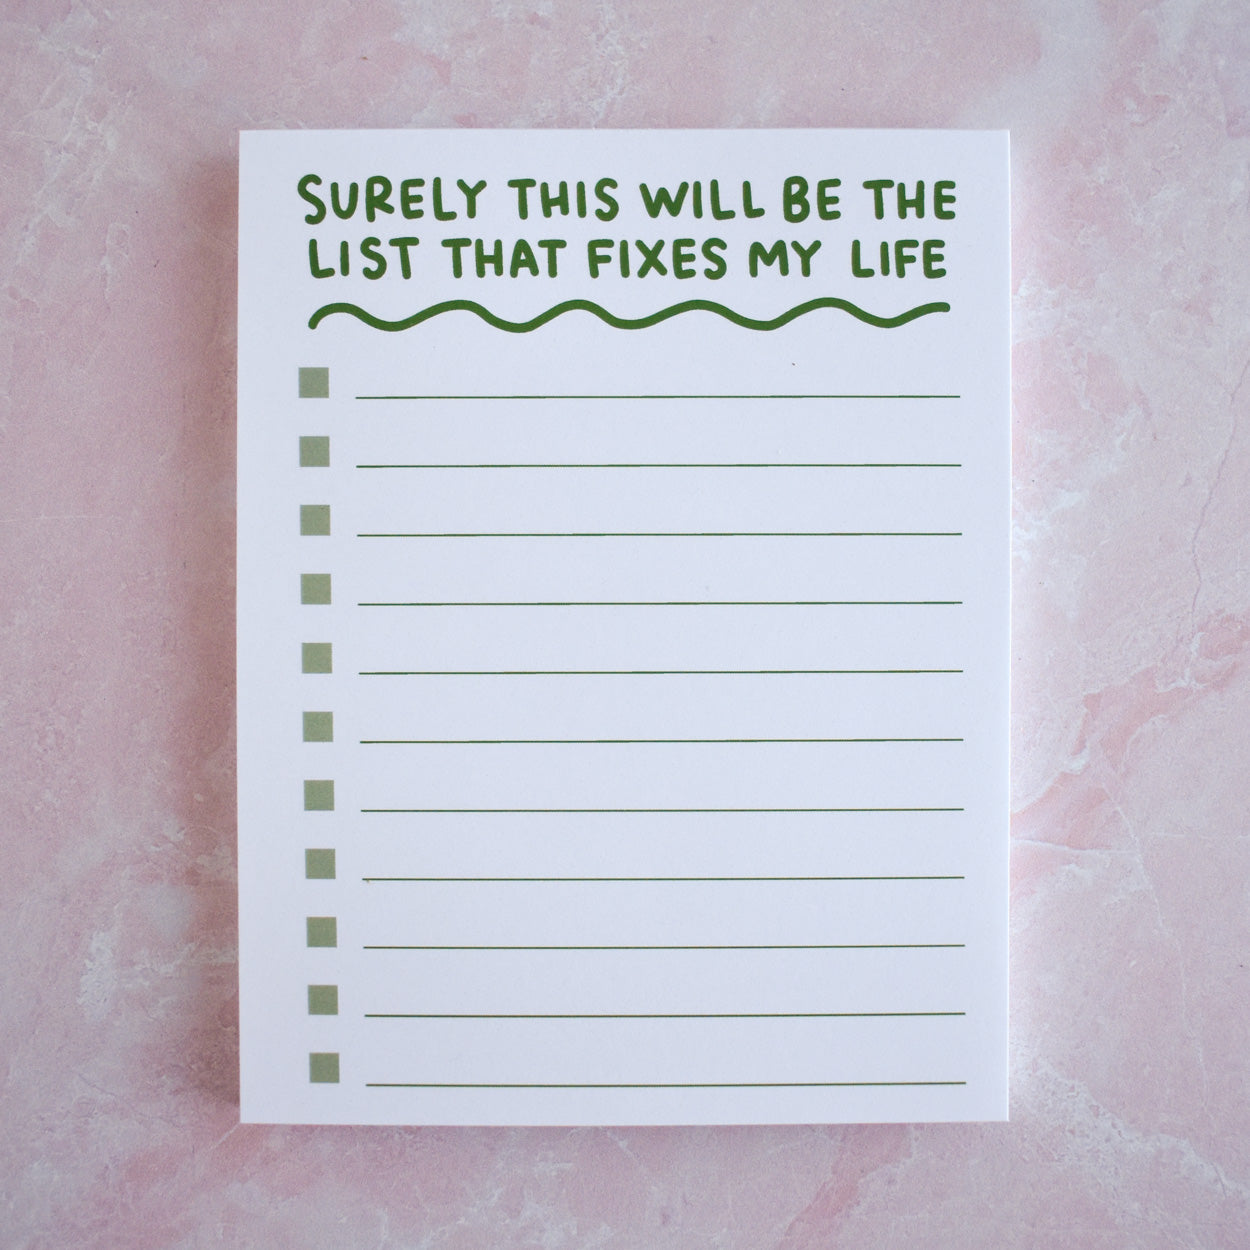 SURELY THIS WILL BE THE
LIST THAT FIXES MY LIFE